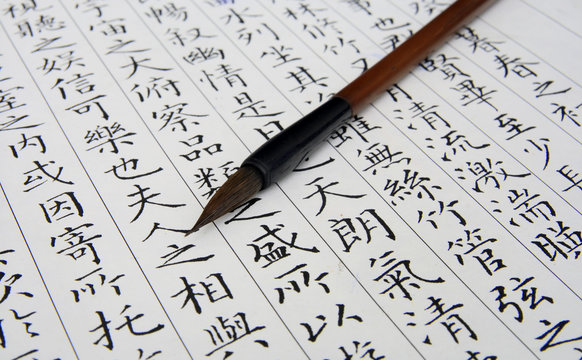 暮春之
賢畢至少
林修竹又有清流激湍暎
水列坐其雖無絲竹管弦之
暢敘幽情是日也天朗氣清
宇宙之大俯察品類之盛所以
視聽之娛信可樂也夫人之相與
室之內或因寄所托
於